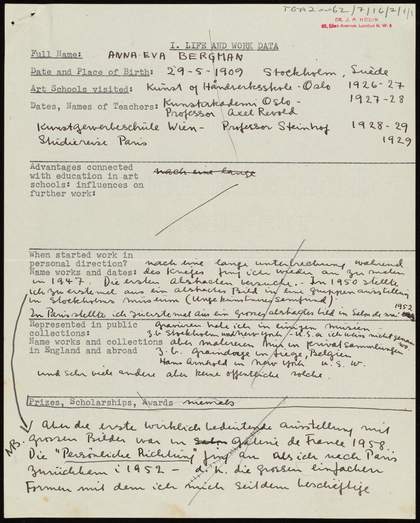 TGA 2-62/7/16/2/1/1
DR. J. P. HODIN
I. LIFE AND WORK DATA
Full Name: ANNA-EVA BERGMAN
Date and Place of Birth: 29-5-1909 Stockholm, Suède
Art Schools visited: Kunst og Håndverksskole - Oslo 1926-27
Dates, Names of Teachers: Kunstakademi Oslo - 1927-28
Professor Axel Revold
Kunstgewerbeschüle Wien - Professor Steinhof 1928-29
Studiereise Paris 1929
Advantages connected nach eine lange
with education in art
schools: influences on
further work:
When started work in
personal direction? nach eine lange unterbrechung während
Name works and dates: des Krieges fing ich wieder an zu malen
in 1947. Die ersten abstrakten versuche. - In 1950 stellte
ich zuerst mal aus ein abstraktes Bild in eine gruppenausstellung
in Stockholms museum
In Paris stellte ich zuerst mal aus ein grosses abstraktes bild in Salon de mai 1952
Represented in public Gravüren habe ich in einigen museen
collections: z.b. Stockholm, New York - U.S.A
Name works and collections aber malereien nur in privatsammlungen
in England and abroad z.b. Graindorge in Liège, Belgien
Hans Arnhold in New York u.s.w.
und sehr viele andere aber keine offentliche solche.
Prizes, Scholarships, Awards niemals
NB. Aber die erste wirklich bedeutende ausstellung mit
grossen Bilder war in Galerie de France 1958.
Die "Persönliche Richtung" fing an als ich nach Paris
zurückkam i 1952 - d.h. die grossen einfachen
Formen mit dem ich mich seitdem beschäftige